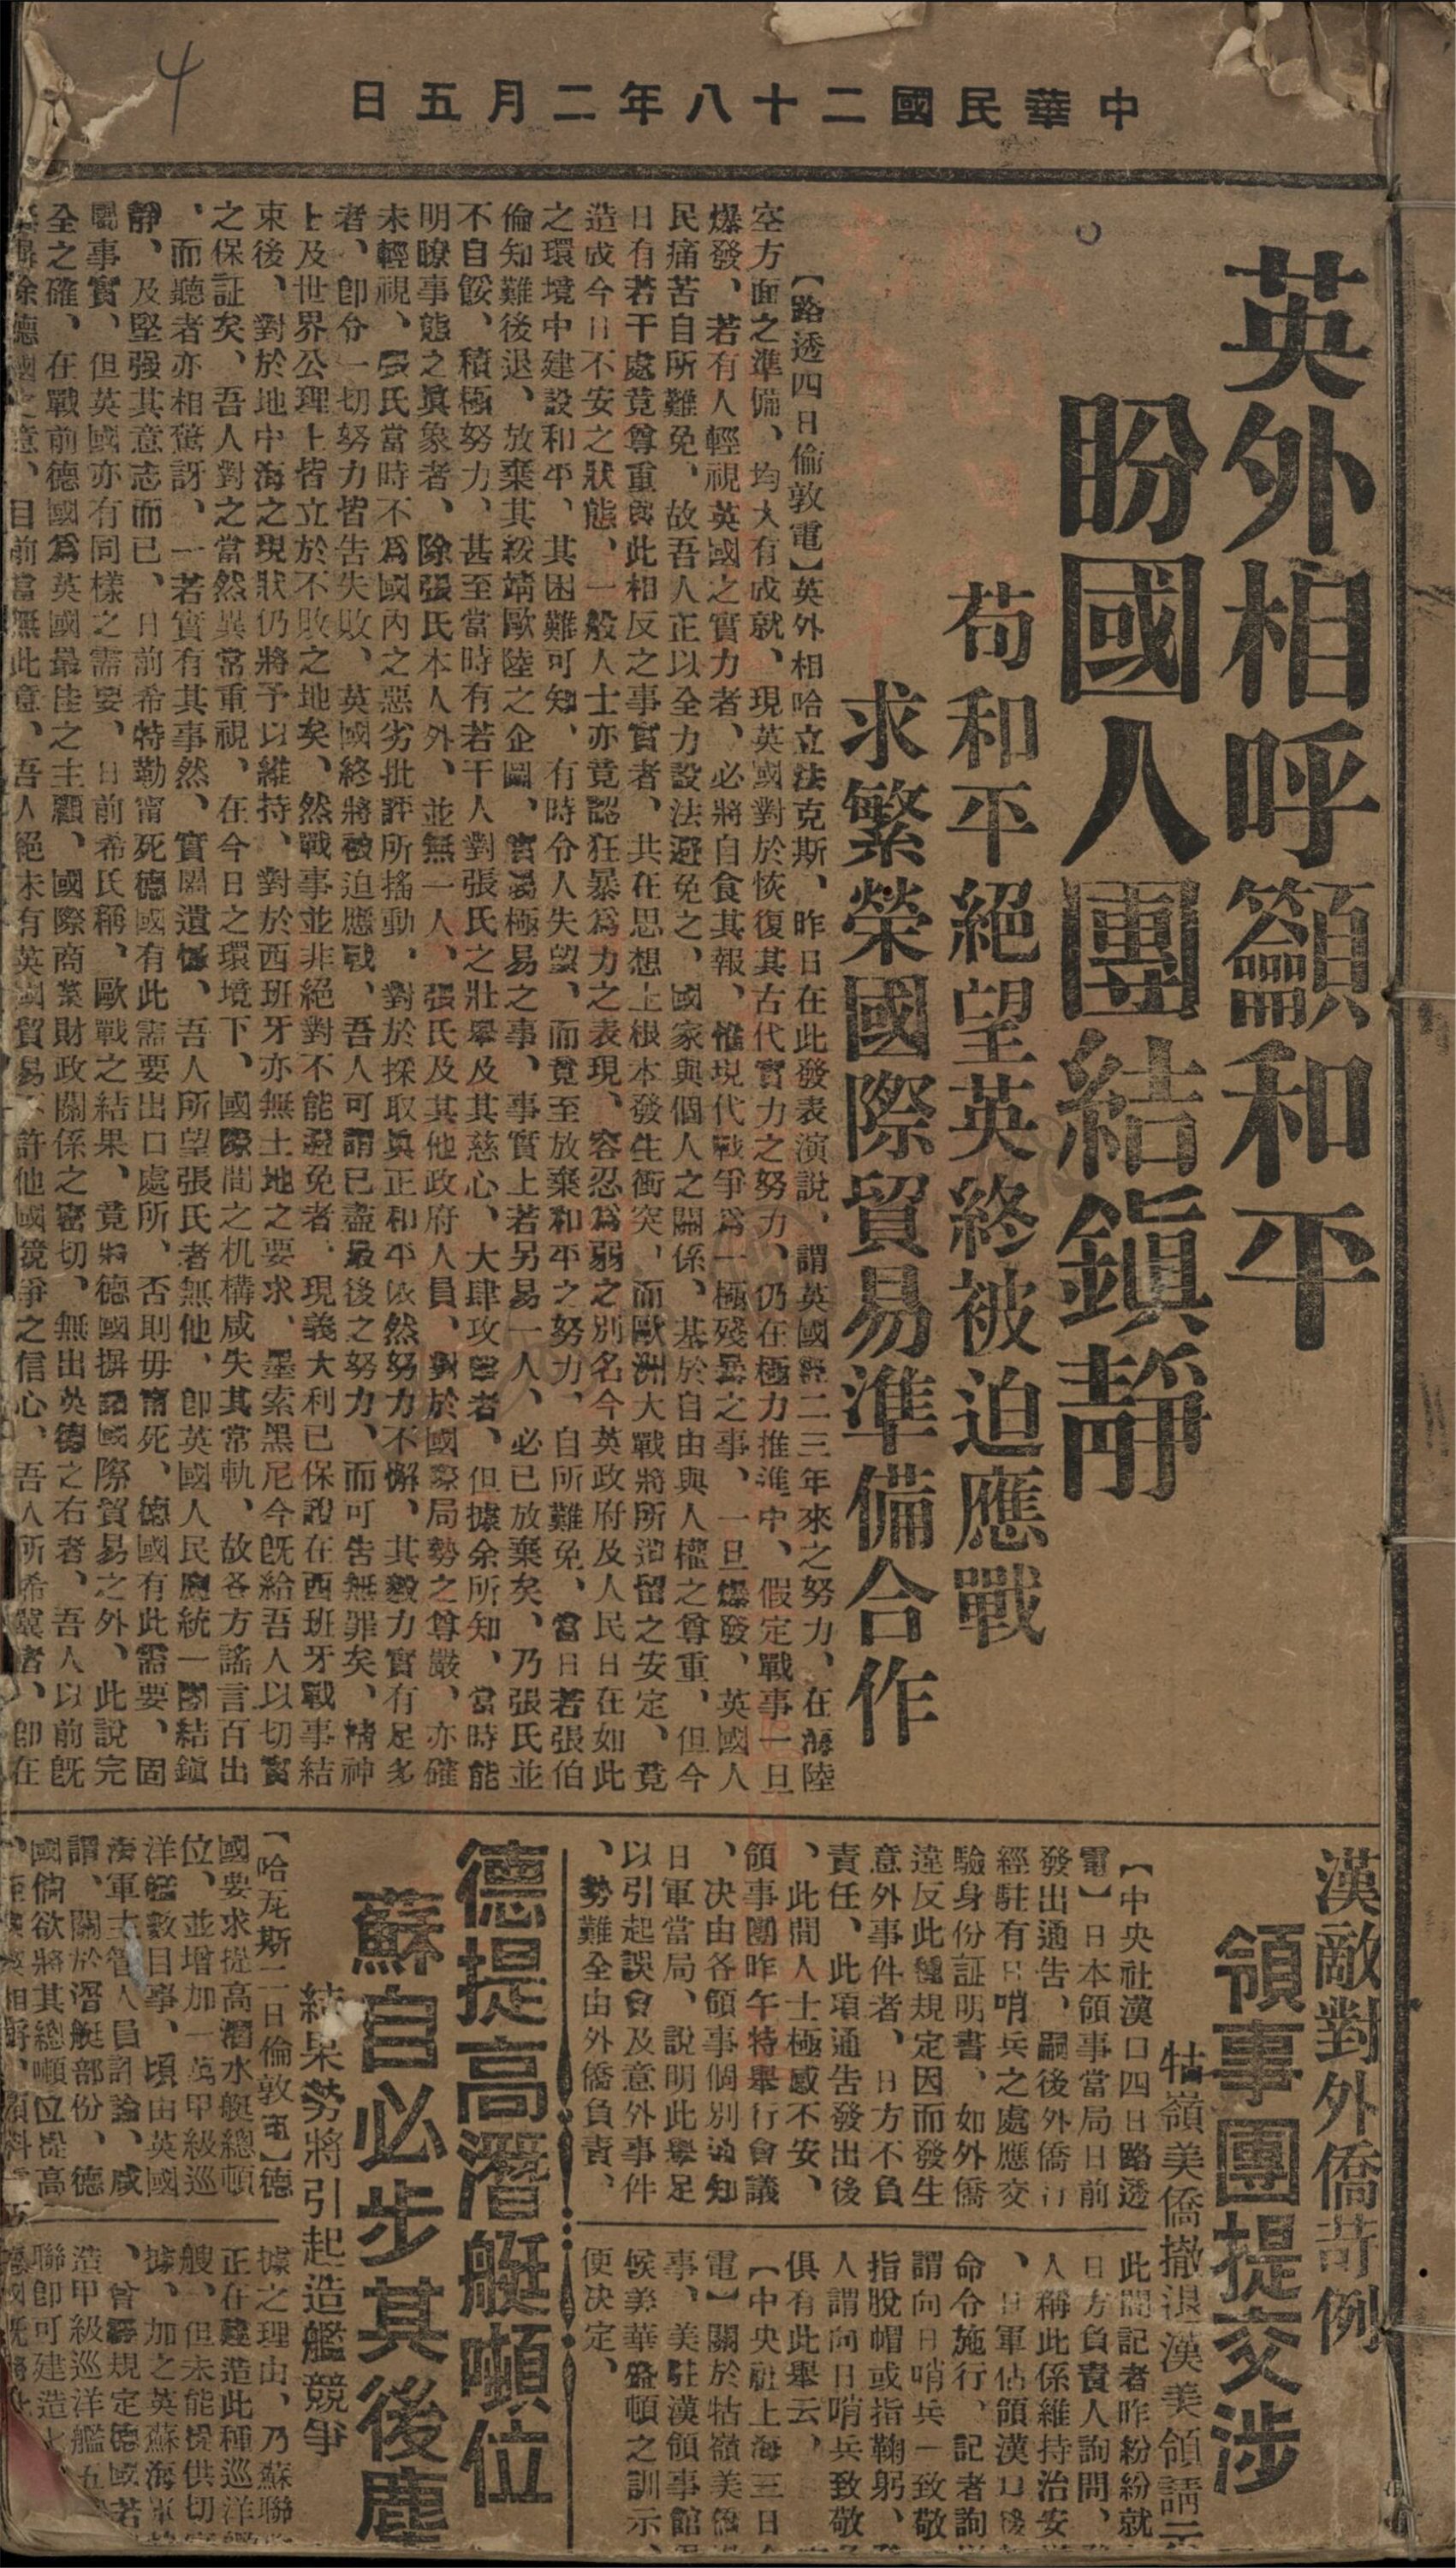 4
中華民國二十八年二月五日
英外相呼籲和平
盼國人團結鎭靜
苟和平絕望英終被迫應戰
求繁榮國際貿易準備合作
【路透四日倫敦電】英外相哈立法克斯、昨日在此發表演說、謂英國經二三年來之努力、在海陸
空方面之準備、均大有成就、現英國對於恢復其古代實力之努力、仍在極力推進中、假定戰事一旦
爆發、若有人輕視英國之實力者、必將自食其報、惟現代戰爭爲一極殘暴之事、一旦爆發、英國人
民痛苦自所難免、故吾人正以全力設法避免之、國家與個人之關係、基於自由與人權之尊重、但今
日有若干處竟尊重與此相反之事實者、共在思想上根本發生衝突、而歐洲大戰將所遺留之安定、竟
造成今日不安之狀態、一般人士亦竟認狂暴爲力之表現、容忍爲弱之別名今英政府及人民日在如此
之環境中建設和平、其困難可知、有時令人失望、而竟至放棄和平之努力、自所難免、當日若張伯
倫知難後退、放棄其綏靖歐陸之企圖、實爲極易之事、事實上若另易一人、必已放棄矣、乃張氏並
不自餒、積極努力、甚至當時有若干人對張氏之壯舉及其慈心、大肆攻擊者、但據余所知、當時能
明瞭事態之眞象者、除張氏本人外、並無一人、張氏及其他政府人員、對於國際局勢之尊嚴、亦確
未輕視、張氏當時不爲國內之惡劣批評所搖動、對於採取眞正和平依然努力不懈、其毅力實有足多
者、卽令一切努力皆告失敗、英國終將被迫應戰、吾人可謂已盡最後之努力、而可告無罪矣、精神
上及世界公理上皆立於不敗之地矣、然戰事並非絕對不能避免者、現義大利已保證在西班牙戰事結
束後、對於地中海之現狀仍將予以維持、對於西班牙亦無土地之要求、墨索黑尼今旣給吾人以切實
之保証矣、吾人對之當然異常重視、在今日之環境下、國際間之机構咸失其常軌、故各方謠言百出
、而聽者亦相驚訝、一若實有其事然、實屬遺憾、吾人所望張氏者無他、卽英國人民應統一團結鎭
靜、及堅强其意志而已、日前希特勒甯死德國有此需要出口處所、否則毋甯死、德國有此需要、固
屬事實、但英國亦有同樣之需要、日前希氏稱、歐戰之結果、竟將德國摒諸國際貿易之外、此說完
全之確、在戰前德國爲英國最佳之主顧、國際商業財政關係之密切、無出英德之右者、吾人以前旣
除德國之意、目前當無此意、吾人絕未有英國貿易不許他國競爭之信心、吾人所希冀者、卽在
漢敵對外僑苛例
領事團提交涉
牯嶺美僑撤退漢美領請示
【中央社漢口四日路透
電】日本領事當局日前
發出通告、嗣後外僑行
經駐有日哨兵之處應交
驗身份証明書、如外僑
違反此種規定因而發生
意外事件者、日方不負
責任、此項通告發出後
、此間人士極感不安、
領事團昨午特舉行會議
、決由各領事個別通知
日軍當局、說明此舉足
以引起誤會及意外事件
、勢難全由外僑負責、
此間記者昨紛紛就
日方負責人詢問、
人稱此係維持治安
、日軍佔領漢口後
命令施行、記者詢
謂向日哨兵一致敬
指脫帽或指鞠躬、
人謂向日哨兵致敬
俱有此舉云、
【中央社上海三日
電】關於牯嶺美僑
事、美駐漢領事館
候美華盛頓之訓示、
便決定、
德提高潛艇噸位
蘇自必步其後塵
結果勢將引起造艦競爭
【哈瓦斯二日倫敦電】德
國要求提高潛水艇總噸
位、並增加一萬甲級巡
洋艦數目事、頃由英國
海軍主管人員討論、咸
謂、關於潛艇部份、德
國倘欲將其總噸位提高
據之理由、乃蘇聯
正在建造此種巡洋
艘、但未能提供切
據、加之英蘇海軍
、曾經規定德國若
造甲級巡洋艦五
聯卽可建造七